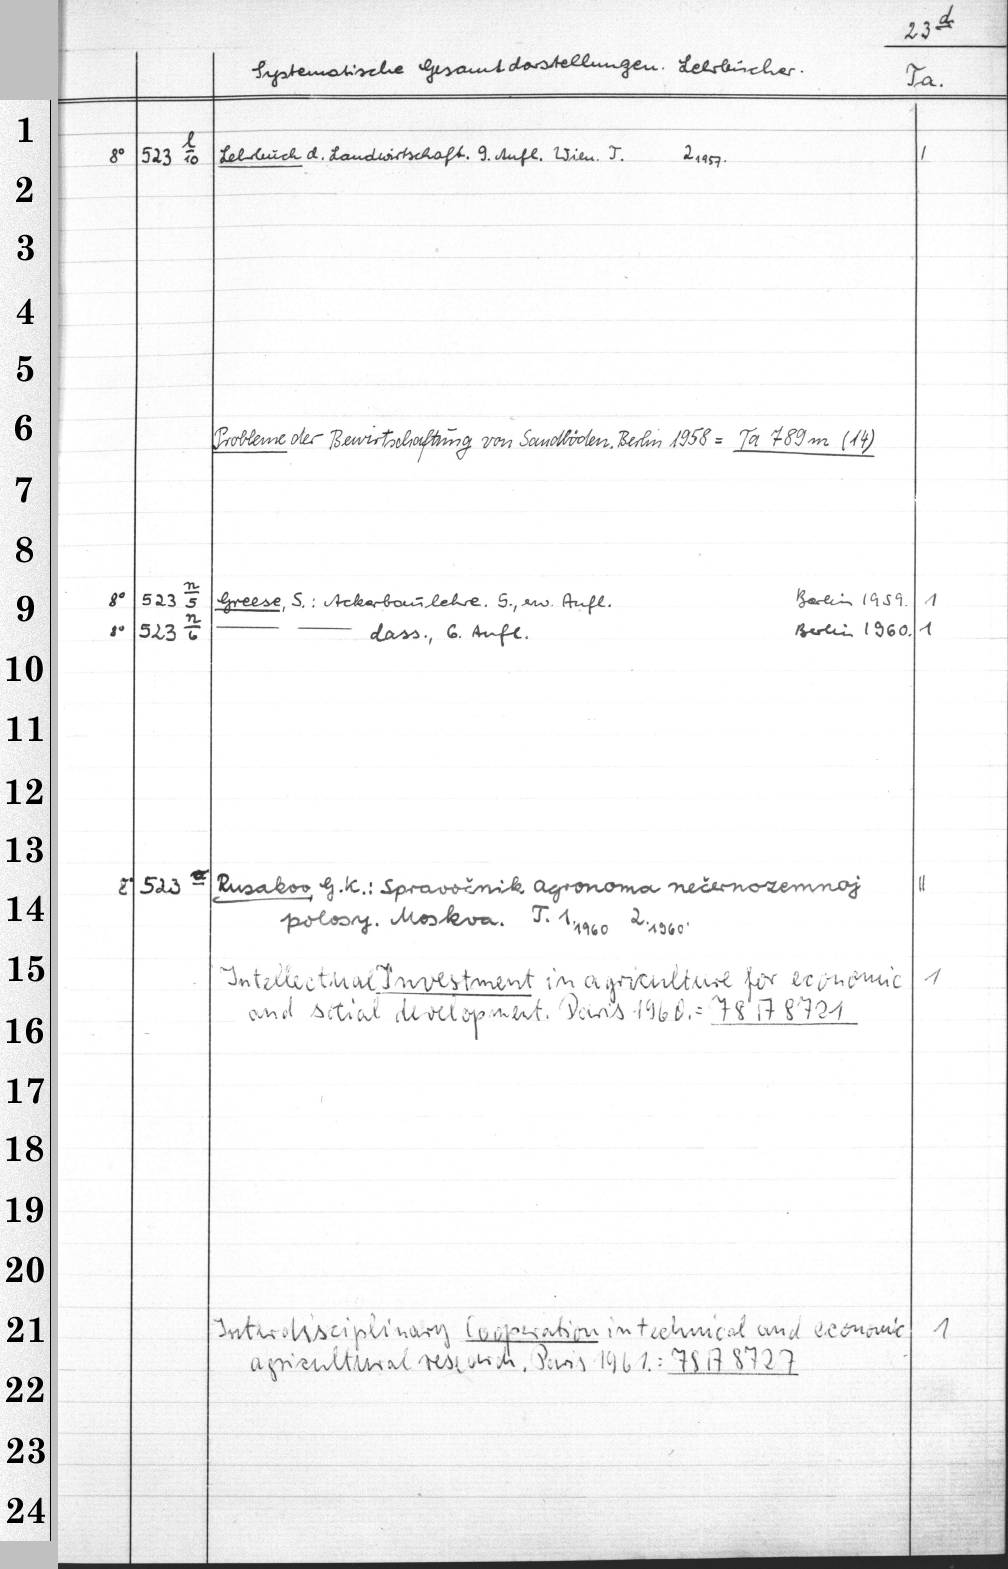 23 d
Systematische Gesamtdarstellungen. Lehrbücher. Ta.
1
8° 523 l/10 Lehrbuch d. Landwirtschaft. 9. Aufl. Wien. T. 2 1957. 1
2
3
4
5
6
Probleme der Bewirtschaftung von Sandböden. Berlin 1958 = Ta 789m (14)
7
8
8° 523 n/5 Greese, S.: Ackerbaulehre. 5., erw. Aufl. Berlin 1959. 1
9
8° 523 n/6 —— —— dass., 6. Aufl. Berlin 1960. 1
10
11
12
13
8° 523 Rusakov, G.K.: Spravočnik agronoma nečernozemnoj II
14
polosy. Moskva. T. 1.1960 2.1960.
15
Intellectual Investment in agriculture for economic 1
and social development. Paris 1960. = 78 8721
16
17
18
19
20
21
Interdisciplinary Cooperation in technical and economic 1
agricultural research. Paris 1961. = 78 8727
22
23
24